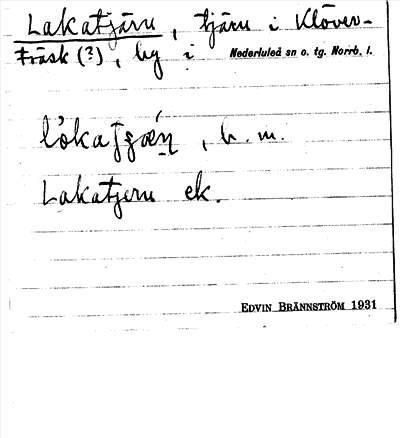 Lakatjärn, tjärn i Klöver-
träsk (?), by i Nederluleå sn o. tg. Norrb. l.
, b. m.
Lakatjern ek.
EDVIN BRÄNNSTRÖM 1931